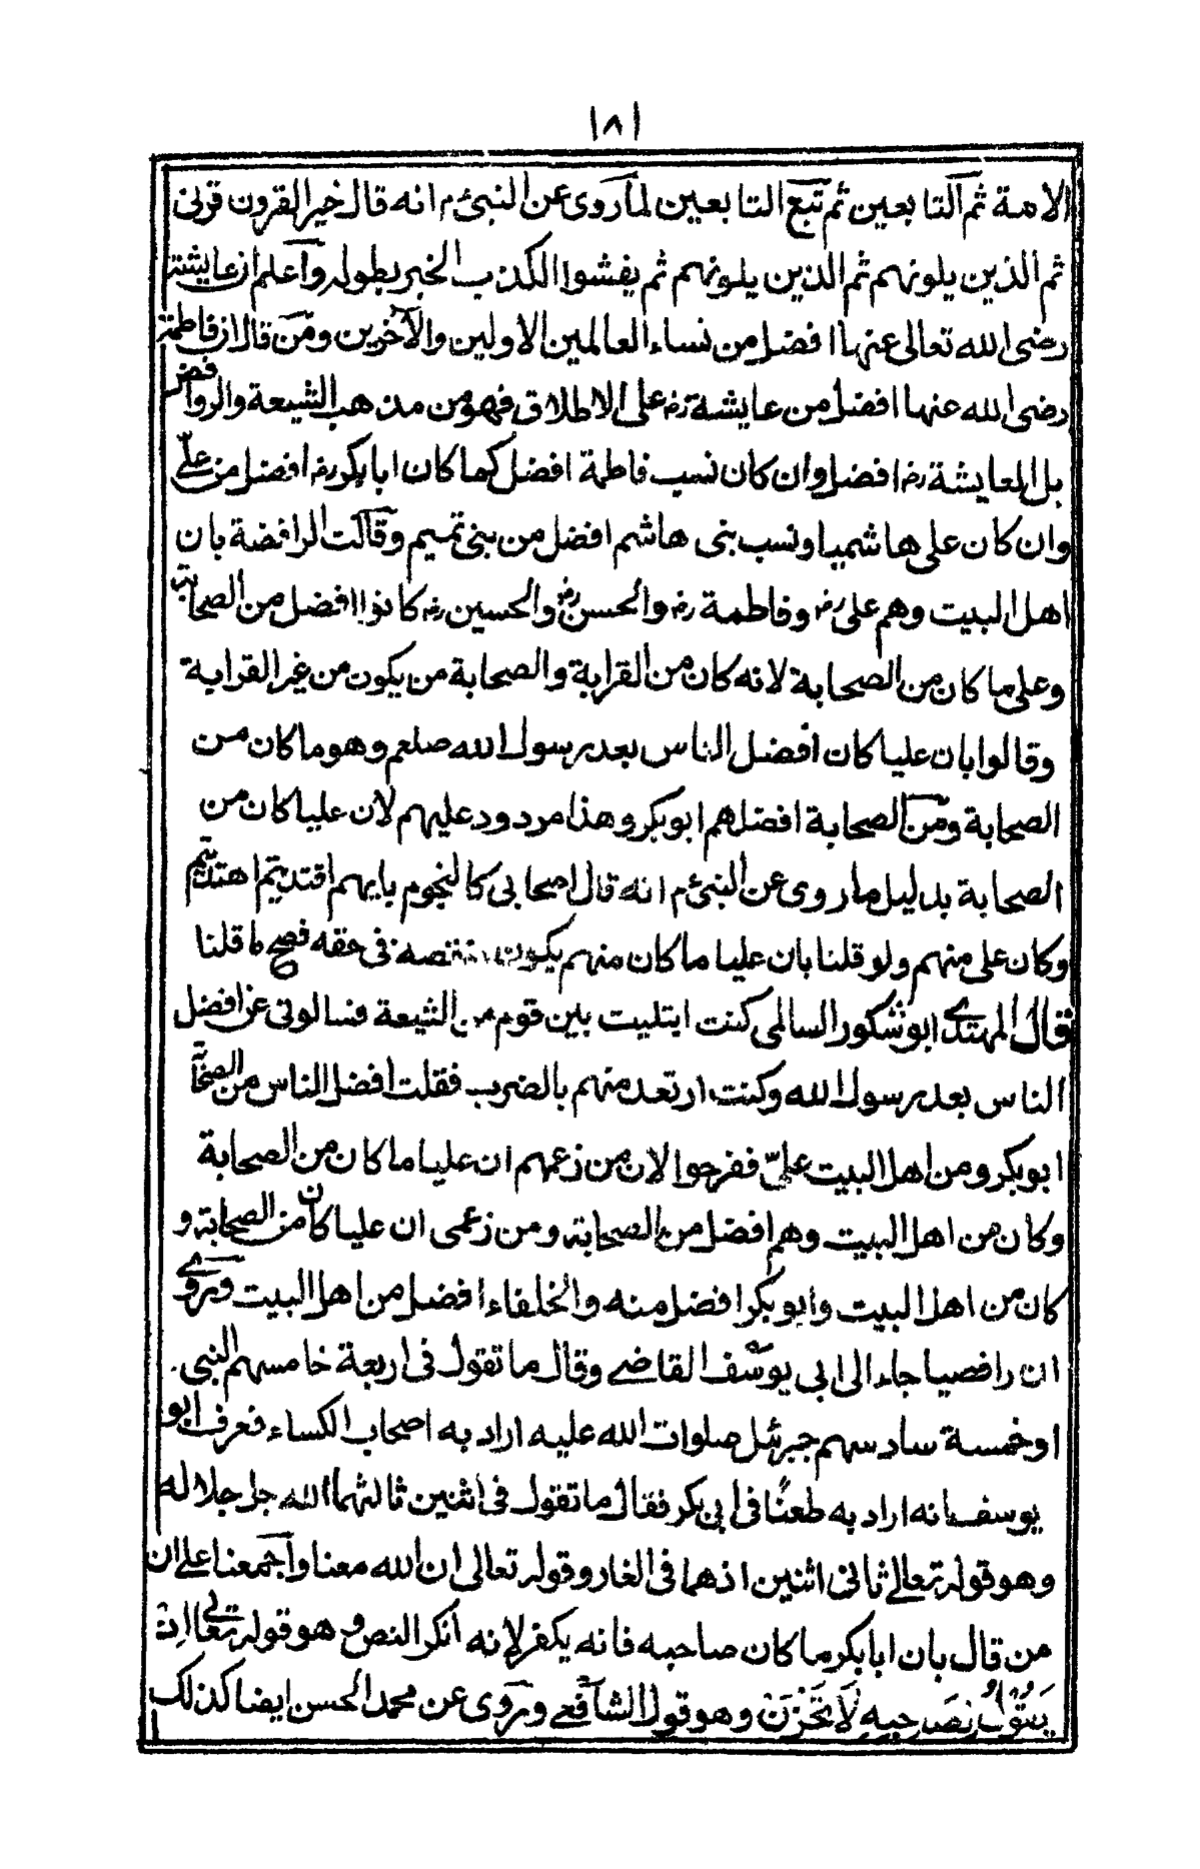 ١٨١
الامة ثم التابعين ثم تبع التابعين لما روى عن النبىء م انه قال خير القرون قرنى
ثم الذين يلونهم ثم الذين يلونهم ثم يفشوا الكذب الخبر بطوله واعلم ان عايشة
رضى الله تعالى عنها افضل من نساء العالمين الاولين والآخرين ومن قال ان فاطمة
رضى الله عنها افضل من عايشة رض على الاطلاق فهو من مذهب الشيعة والروافض
بل المعايشة رض افضل وان كان نسب فاطمة افضل كما كان ابا بكر رض افضل من علىّ
وان كان على هاشميا ونسب بنى هاشم افضل من بنى تميم وقالت الرافضة بان
اهل البيت وهم على رض وفاطمة رض والحسن رض والحسين رض كانوا افضل من الصحابة
وعلى ما كان من الصحابة لانه كان من القرابة والصحابة من يكون من غير القرابة
وقالوا بان عليا كان افضل الناس بعد رسول الله صلعم وهو ما كان من
الصحابة ومن الصحابة افضلهم ابو بكر وهذا مردود عليهم لان عليا كان من
الصحابة بدليل ما روى عن النبىء م انه قال اصحابى كالنجوم بايهم اقتديتم اهتديتم
وكان على منهم ولو قلنا بان عليا ما كان منهم يكون منقصه فى حقه فصح ما قلنا
قال المهتدى ابو شكور السالمى كنت ابتليت بين قوم من الشيعة فسالونى عن افضل
الناس بعد رسول الله وكنت ارتعد منهم بالضرب فقلت افضل الناس من الصحابة
ابو بكر ومن اهل البيت علىّ ففرحوا لان من زعمهم ان عليا ما كان من الصحابة
وكان من اهل البيت وهم افضل من الصحابة ومن زعمى ان عليا كان من الصحابة و
كان من اهل البيت وابو بكر افضل منه والخلفاء افضل من اهل البيت وروى
ان رافضيا جاء الى ابى يوسف القاضى وقال ما تقول فى اربعة خامسهم النبى
او خمسة سادسهم جبرئل صلوات الله عليه اراد به اصحاب الكساء فعرف ابو
يوسف انه اراد به طعنًا فى ابى بكر فقال ما تقول فى اثنين ثالثهما الله جل جلاله
وهو قوله تعالى ثانى اثنين اذ هما فى الغار وقوله تعالى ان الله معنا واجمعنا على ان
من قال بان ابا بكر ما كان صاحبه فانه يكفر لانه انكر النص وهو قوله تعالى اذ
يَقُوْلُ لِصَاحِبِهٖ لَا تَحْزَنْ وهو قول الشافعى وروى عن محمد الحسن ايضا كذلك